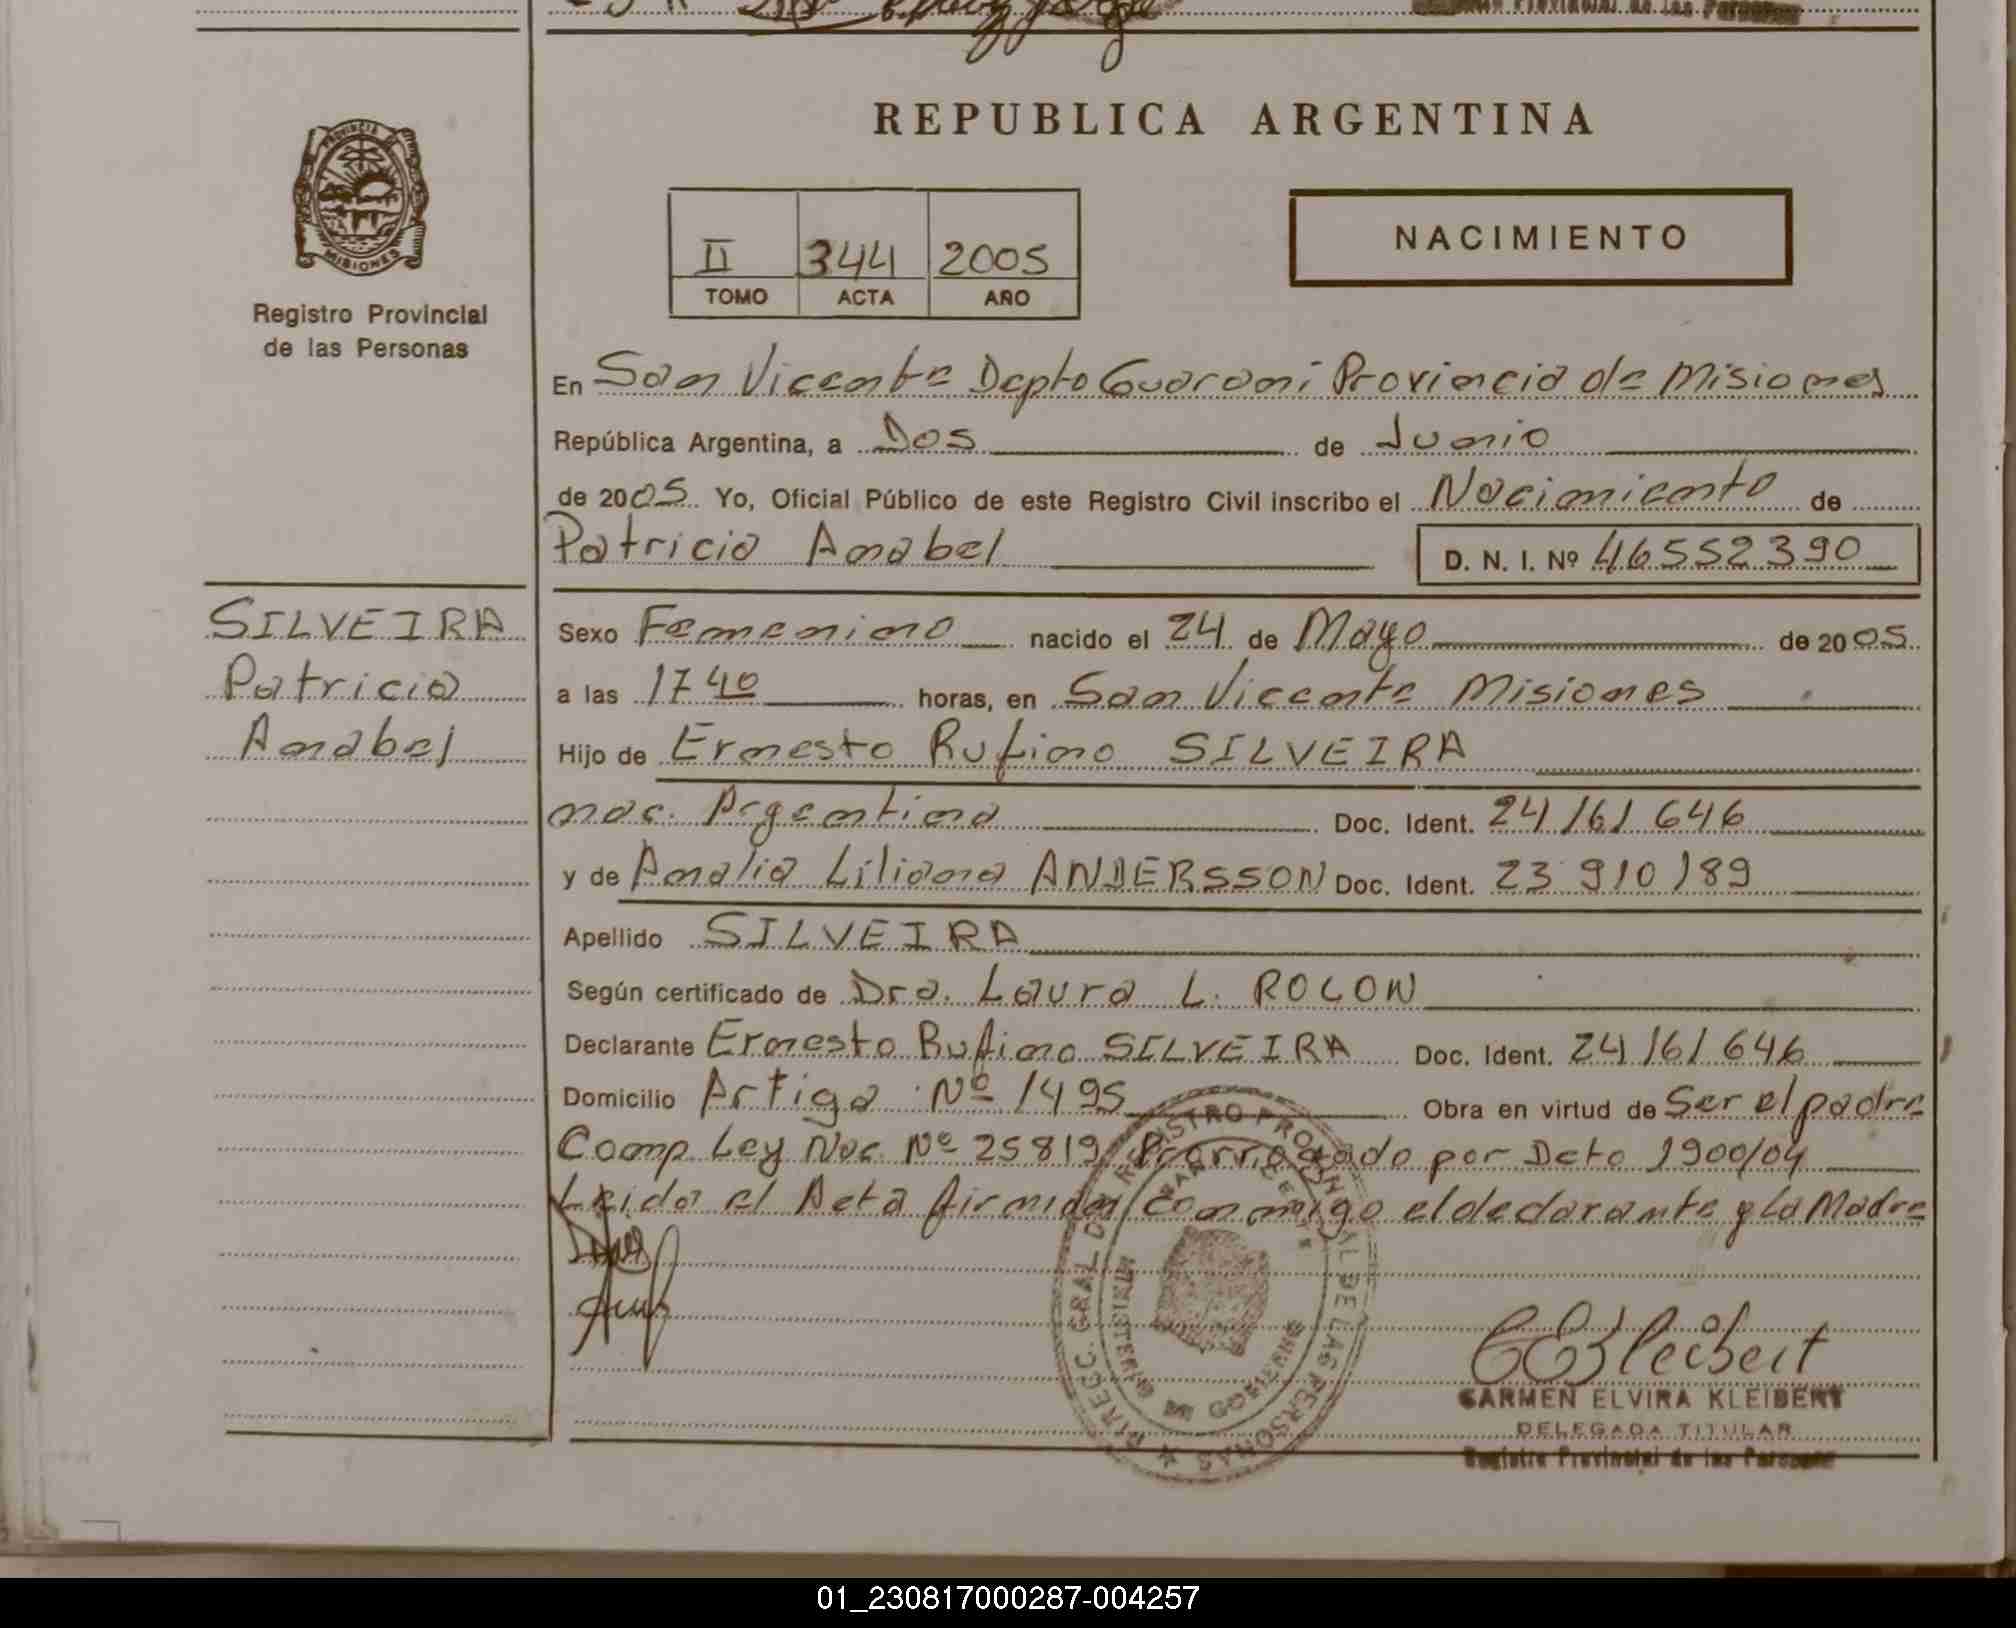 REPUBLICA ARGENTINA
PROVINCIA DE
MISIONES
Registro Provincial
de las Personas
II 344 2005
TOMO ACTA AÑO
NACIMIENTO
En San Vicente Dpto Guarani Provincia de Misiones
República Argentina, a Dos de Junio
de 2005 Yo, Oficial Público de este Registro Civil inscribo el Nacimiento de
Patricia Anabel D. N. I. Nº 46552390
SILVEIRA
Patricia
Anabel
Sexo Femenino nacido el 24 de Mayo de 2005
a las 17 40 horas, en San Vicente Misiones
Hijo de Ernesto Rufino SILVEIRA
nac. Argentina Doc. Ident. 24 161 646
y de Analia Liliana ANDERSSON Doc. Ident. 23 910 189
Apellido SILVEIRA
Según certificado de Dra. Laura L. ROLON
Declarante Ernesto Rufino SILVEIRA Doc. Ident. 24 161 646
Domicilio Artiga Nº 1495 Obra en virtud de Ser el padre
Comp Ley Nac Nº 25819 Prorrogado por Dcto 1900/04
Leida el Acta firman conmigo el declarante y La Madre
DIRECC. GRAL. DEL REGISTRO PROVINCIAL DE LAS PERSONAS
SAN VICENTE
MINISTERIO DE GOBIERNO
CEKleibert
CARMEN ELVIRA KLEIBERT
DELEGADA TITULAR
Registro Provincial de las Personas
01_230817000287-004257